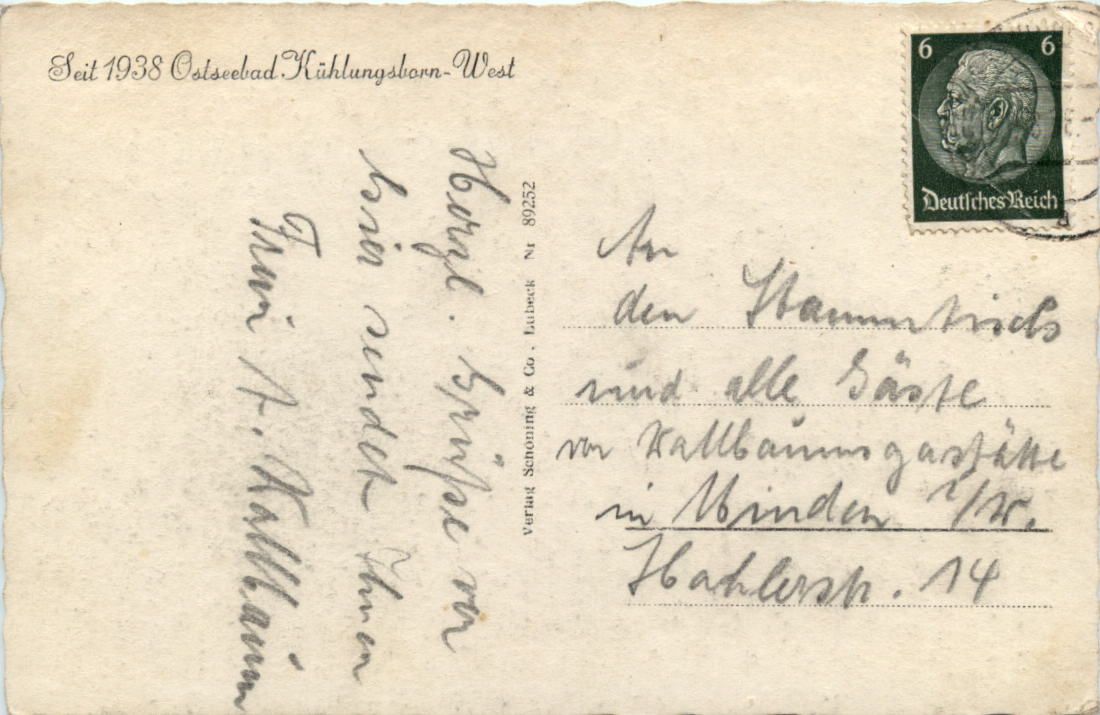 Seit 1938 Ostseebad Kühlungsborn-West
6 6
Deutsches Reich
Herzl. Grüße von
hier sendet Ihnen
Frau A. Kallbaum
Verlag Schöning & Co., Lübeck Nr 89252
An
den Stammtisch
und alle Gäste
von Kallbaumsgastätte
in Minden i/W.
Hahlerstr. 14